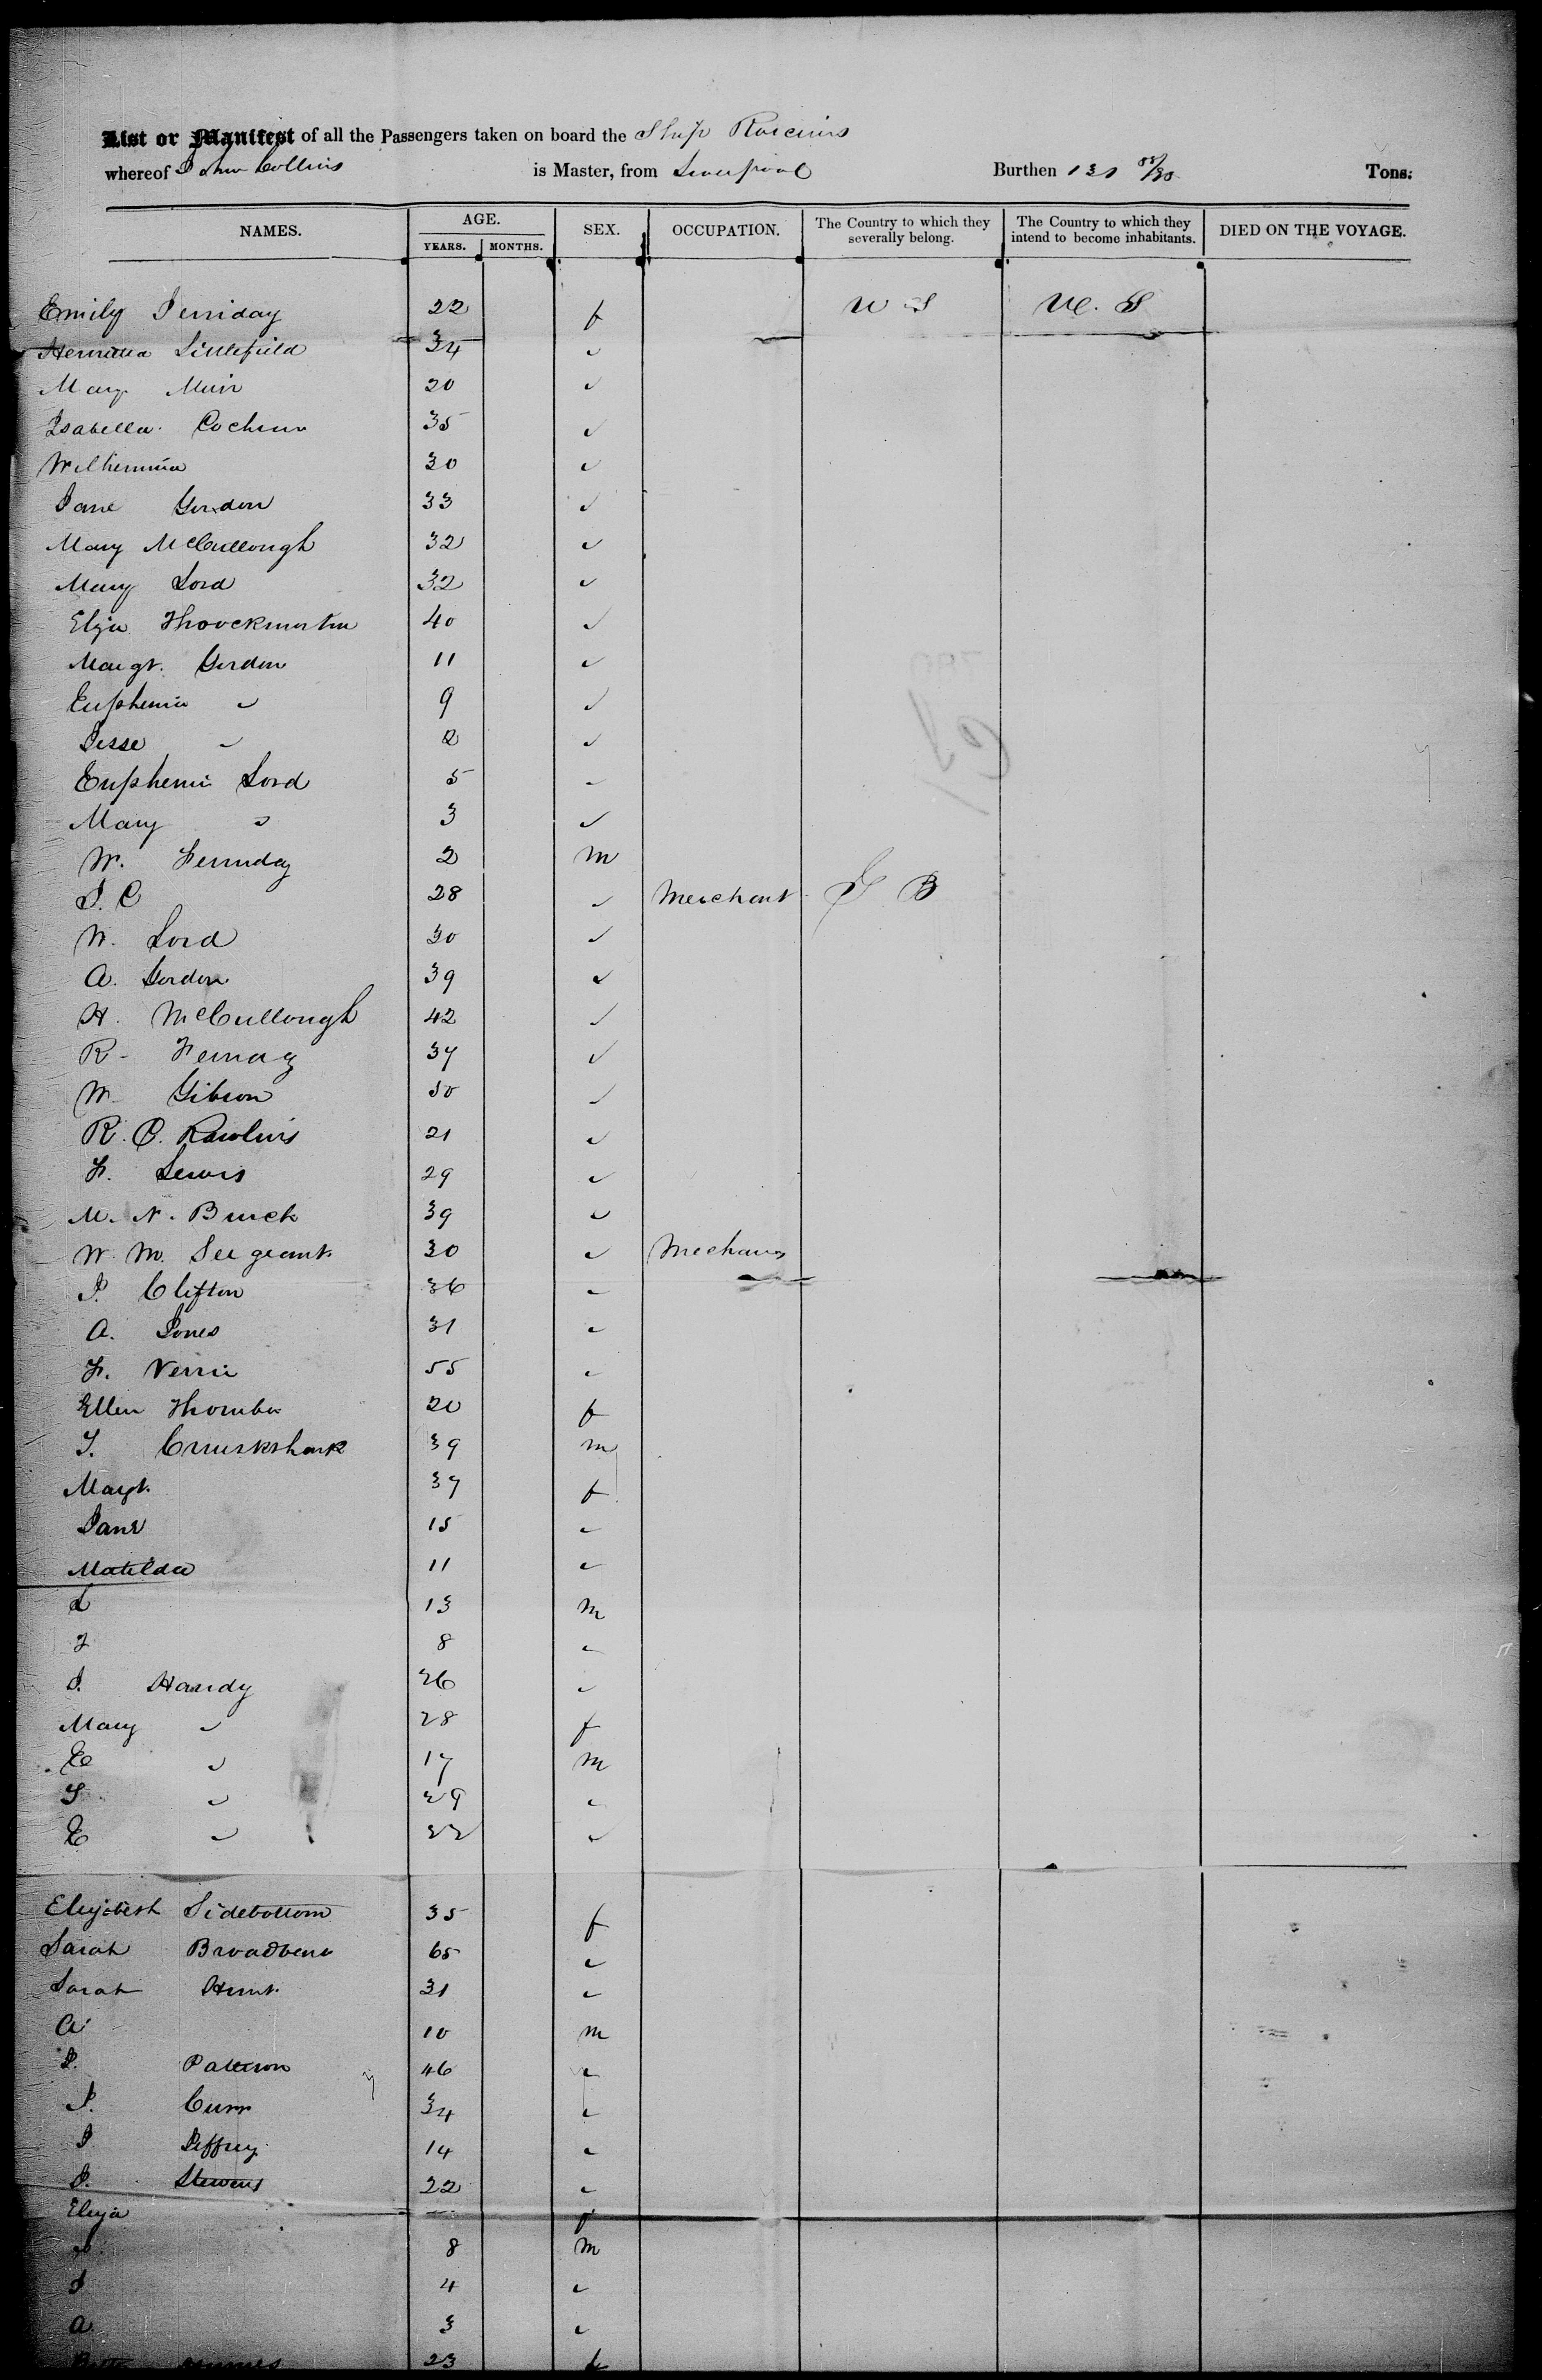 List or Manifest of all the Passengers taken on board the Ship Roscius
whereof John Collins is Master, from Liverpool Burthen Tons.
NAMES. AGE. YEARS. MONTHS. SEX. OCCUPATION. The Country to which they severally belong. The Country to which they intend to become inhabitants. DIED ON THE VOYAGE.
Emily Ferriday 22 f U S U. S
Henrietta Littlefield 34 ✓
Mary Muir 20 ✓
Isabella Cochran 35 ✓
Wilhemina 30 ✓
Jane Gordon 33 ✓
Mary McCullough 32 ✓
Mary Lord 32 ✓
Eliza Throckmorton 40 ✓
Margt. Gordon 11 ✓
Euphemia ✓ 9 ✓
Jesse ✓ 2 ✓
Euphemi Lord 5 ✓
Mary ✓ 3 ✓
W. Ferriday 2 m
J. C 28 ✓ Merchant G B
W. Lord 30 ✓
A. Gordon 39 ✓
H. McCullough 42 ✓
R. 37 ✓
W. Gibson 50 ✓
R. C. Rawlins 21 ✓
F. Lewis 29 ✓
M. N. 39 ✓
W. M. Seegeant 30 ✓ Mechanic
J. Clifton 36 ✓
A. Jones 31 ✓
F. 55 ✓
Ellen 20 f
J. Cruikshank 39 m
Margt. 37 f
Jane 15 ✓
Matilda 11 ✓
L 13 m
J 8 ✓
J. Handy 26 ✓
Mary ✓ 28 f
E ✓ 17 m
S ✓ 29 ✓
E ✓ 22 ✓
Elizabeth Sidebottom 35 f
Sarah Broadbent 65 ✓
Sarah Hunt 31 ✓
A 10 m
J. Patterson 46 ✓
J. Curr 34 ✓
J Jeffrey 14 ✓
J. Stevens 22 ✓
Eliza f
8 m
J 4 ✓
A 3 ✓
23 f